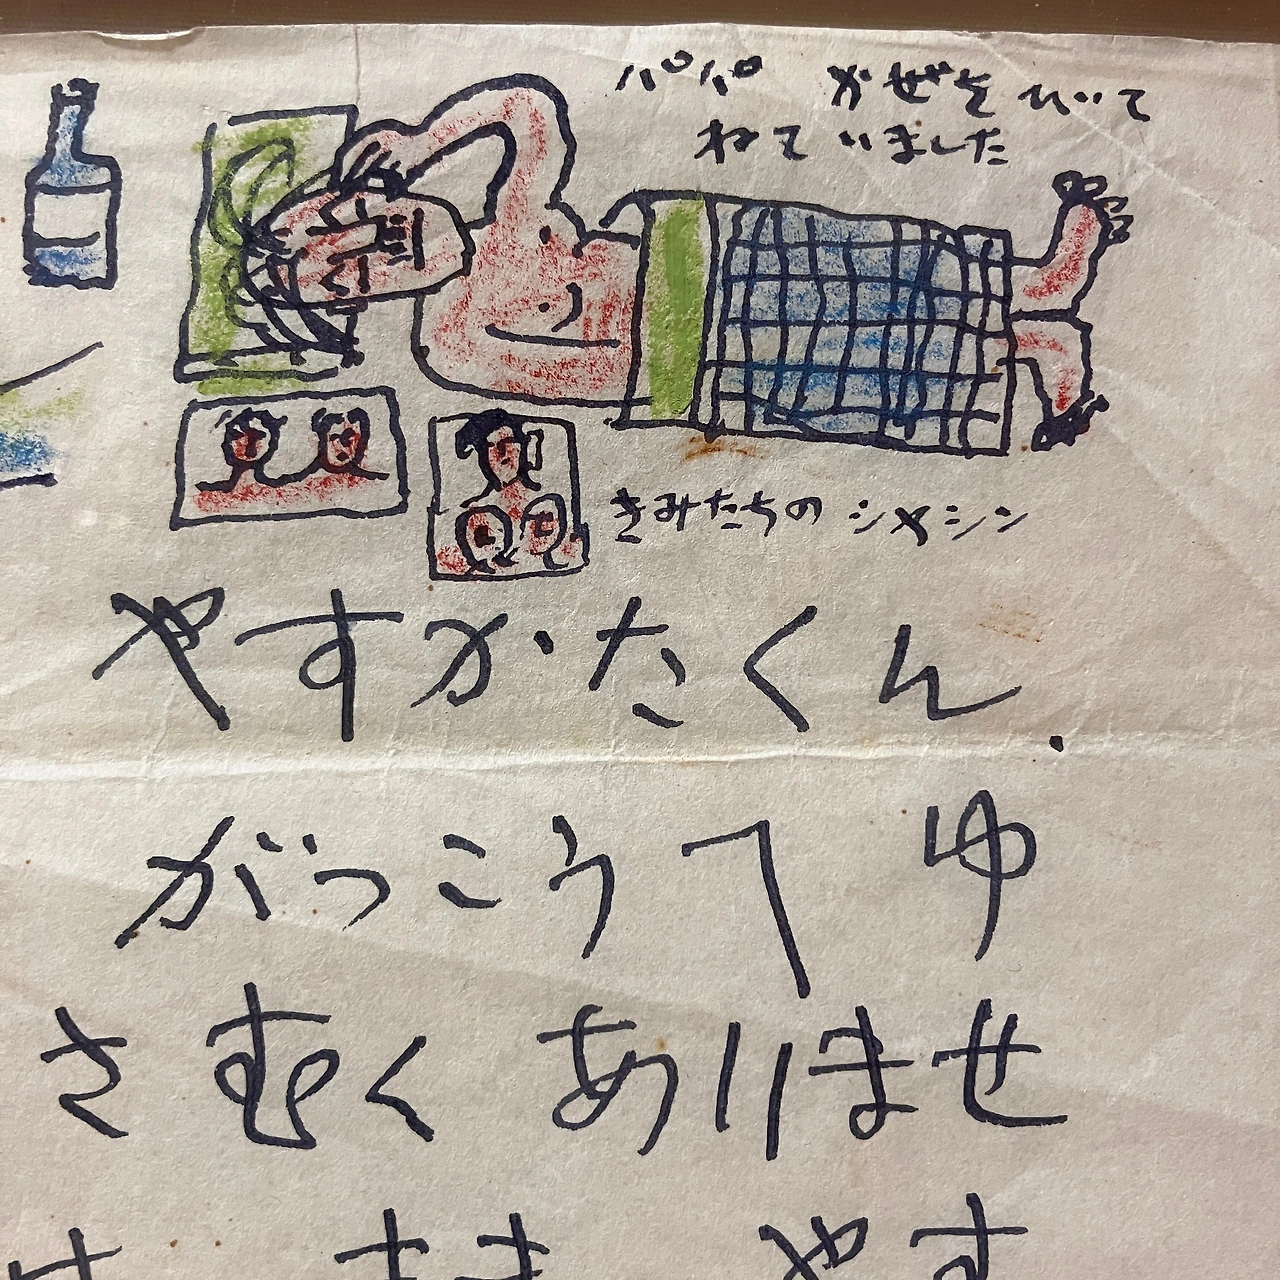 パパ かぜをひいて
ねていました
きみたちの シャシン
やすかたくん.
がっこうへ ゆ
さむく ありませ
やす